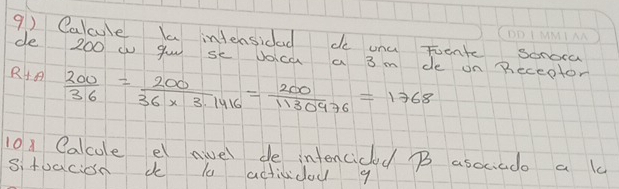 9) Calcule la intensidad de una Fuente Sonora
de 200 w que se Ubica a 3 m de un Receptor
R+A 200/36 = 200/36 x 3.1416 = 200/1130976 = 1768
10) Calcule el nivel de intencidad β asociado a la
situacion de la actividad 9